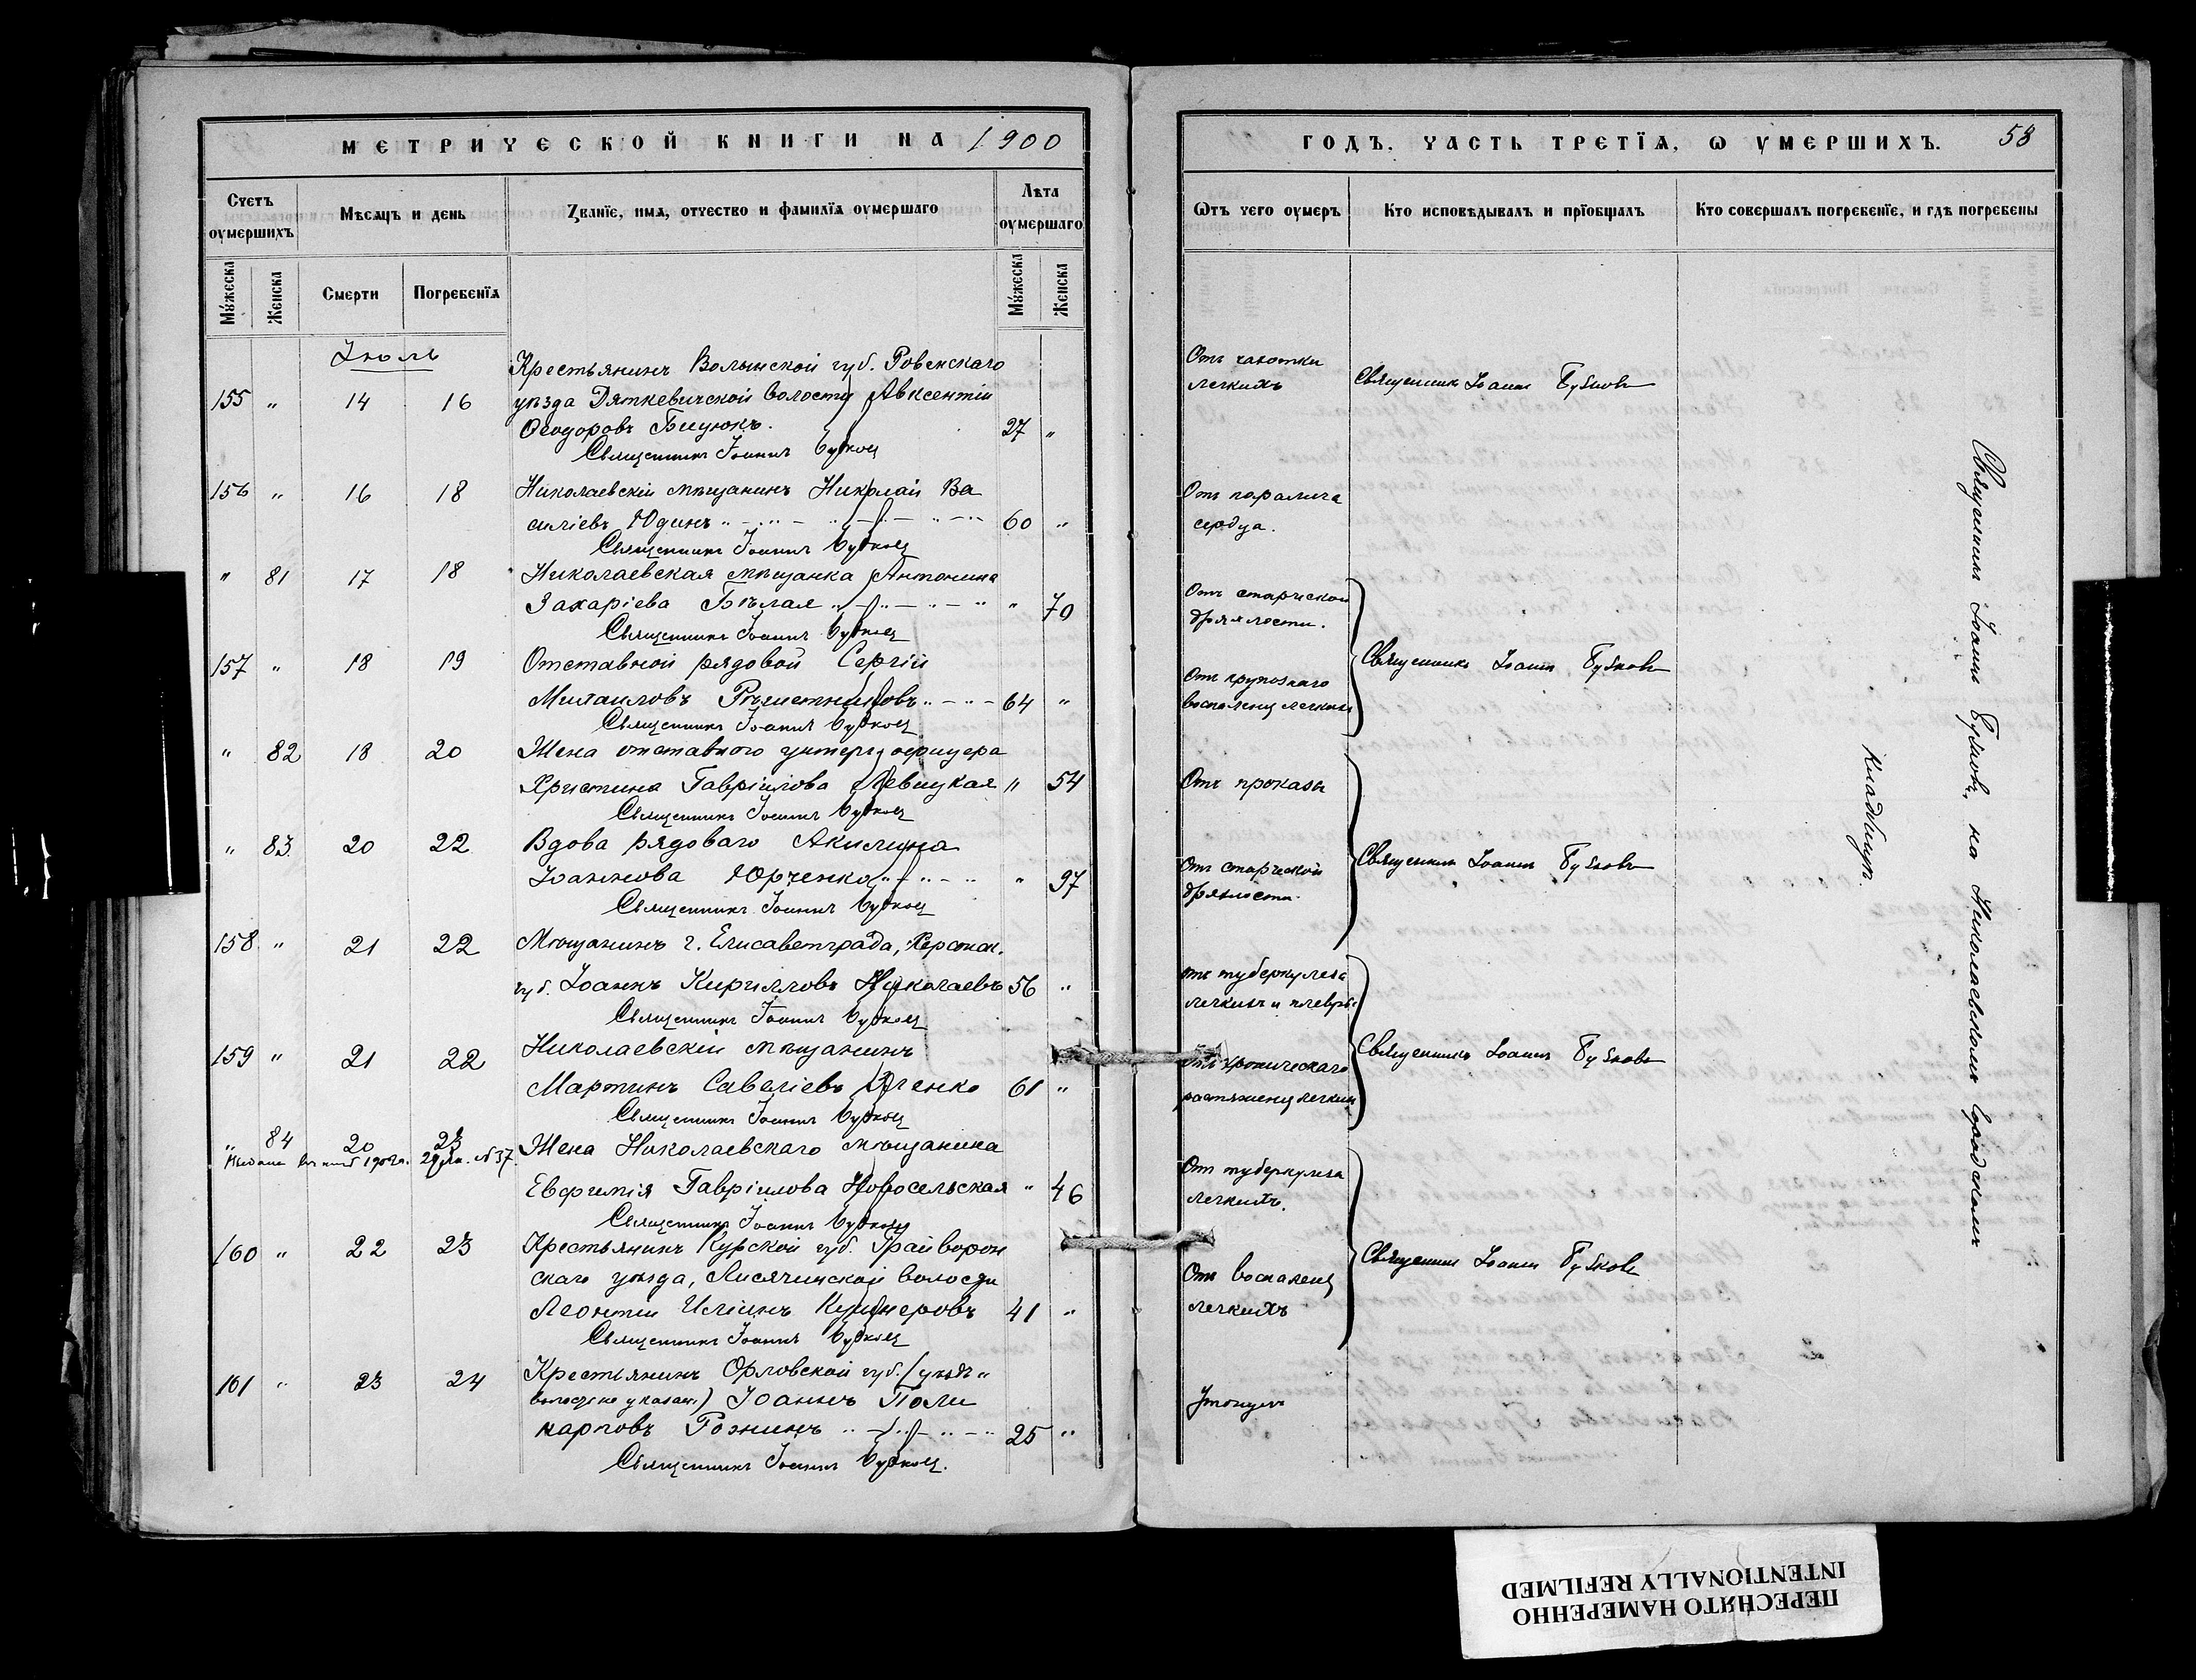 МЕТРИЧЕСКОЙ КНИГИ НА 1900
Счетъ оумершихъ
Мѣсяцъ и день
Званїе, имя, отчество и фамилїя оумершаго
Лѣта оумершаго
Мужеска
Женска
Смерти
Погребенїя
Мужеска
Женска
Іюль
Крестьянинъ Волынской губ. Ровенскаго
155 " 14 16 уѣзда Дяткевичской волости Авксентій
Ѳеодоровъ Бицюкъ. 27 "
Священникъ Іоаннъ Бубновъ
156 " 16 18 Николаевскій мѣщанинъ Николай Ва
силіевъ Юдинъ 60 "
Священникъ Іоаннъ Бубновъ
" 81 17 18 Николаевская мѣщанка Антонина
Захаріева Бѣлая " 70
Священникъ Іоаннъ Бубновъ
157 " 18 19 Отставной рядовой Сергій
Михаиловъ 64 "
Священникъ Іоаннъ Бубновъ
" 82 18 20 Жена отставного унтеръ офицера
Христина Гавріилова Левицкая " 54
Священникъ Іоаннъ Бубновъ
" 83 20 22 Вдова рядоваго Акилина
Іоаннова Юрченко " 97
Священникъ Іоаннъ Бубновъ
158 " 21 22 Мѣщанинъ г. Елисаветграда, Херсонск.
губ. Іоаннъ Кирилловъ Николаевъ 56 "
Священникъ Іоаннъ Бубновъ
159 " 21 22 Николаевскій мѣщанинъ
Мартинъ Савеліевъ 61 "
Священникъ Іоаннъ Бубновъ
" 84 20 23 Жена Николаевскаго мѣщанина
1902 г. №37.
Евфимія Гавріилова Новосельская " 46
Священникъ Іоаннъ Бубновъ
160 " 22 23 Крестьянинъ Курской губ. Грайворон
скаго уѣзда, Лисячинской волости
Леонтій Иліинъ Кушнеровъ 41 "
Священникъ Іоаннъ Бубновъ
161 " 23 24 Крестьянинъ Орловской губ. (уѣздъ и
волость не указан.) Іоаннъ Поли
карповъ Рожинъ 25 "
Священникъ Іоаннъ Бубновъ.
ГОДЪ, ЧАСТЬ ТРЕТЇЯ, Ѡ УМЕРШИХЪ. 58
Ѡтъ чего оумеръ
Кто исповѣдывалъ и прїобщалъ
Кто совершалъ погребенїе, и гдѣ погребены
Отъ чахотки
легкихъ
Священникъ Іоаннъ Бубновъ
Отъ паралича
сердца.
Отъ старческой
дряхлости.
Отъ крупознаго
воспаленія легкихъ
Священникъ Іоаннъ Бубновъ
Отъ проказы
Отъ старческой
дряхлости.
Священникъ Іоаннъ Бубновъ
Отъ туберкулеза
легкихъ и плевры
Отъ хроническаго
растяженія легкихъ
Священникъ Іоаннъ Бубновъ
Отъ туберкулеза
легкихъ.
Отъ воспаленія
легкихъ
Священникъ Іоаннъ Бубновъ
Утонулъ
Священникъ Іоаннъ Бубновъ, на Николаевскомъ городскомъ
кладбищѣ.
ПЕРЕСНЯТО НАМЕРЕННО
INTENTIONALLY REFILMED